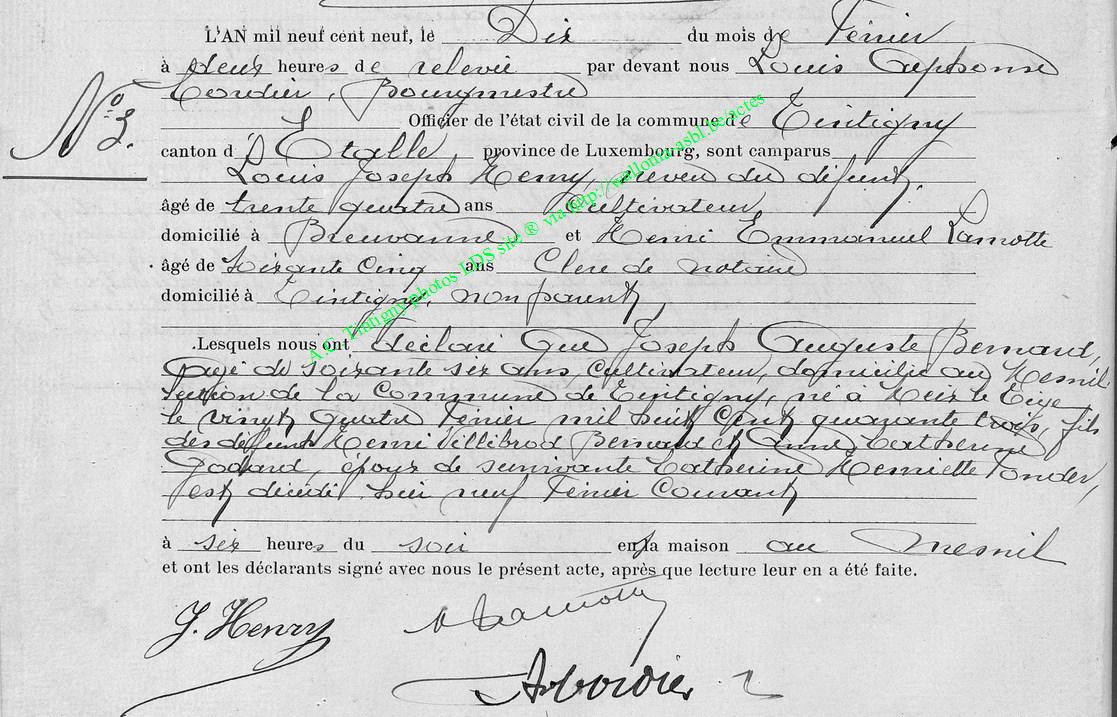 L'AN mil neuf cent neuf, le Dix du mois de Février
à deux heures de relevée par devant nous Louis Alphonse
Cordier, Bourgmestre
N° 3.
Officier de l'état civil de la commune de Tintigny
canton d'Etalle province de Luxembourg, sont camparus
Louis Joseph Henry, neveu du défunt,
âgé de trente quatre ans Cultivateur
domicilié à Breuvanne et Henri Emmanuel Lamotte
âgé de Soixante Cinq ans Clerc de notaire
domicilié à Tintigny, non parent,
A.C. Tintigny photos LDS site ® via http://wallonia-asbl.be/actes
Lesquels nous ont déclaré que Joseph Auguste Bernard,
âgé de soixante six ans, Cultivateur, domicilié au Mesnil
section de la Commune de Tintigny, né à Meix le Tige
le vingt quatre Février mil huit Cent quarante trois, fils
des défunts Henri Villibrod Bernard et Anne Catherine
Godard, époux de survivante Catherine Henriette Ponder,
est décédé hier neuf Février Courant
à six heures du soir en sa maison au Mesnil
et ont les déclarants signé avec nous le présent acte, après que lecture leur en a été faite.
J. Henry Lamotte
Cordier